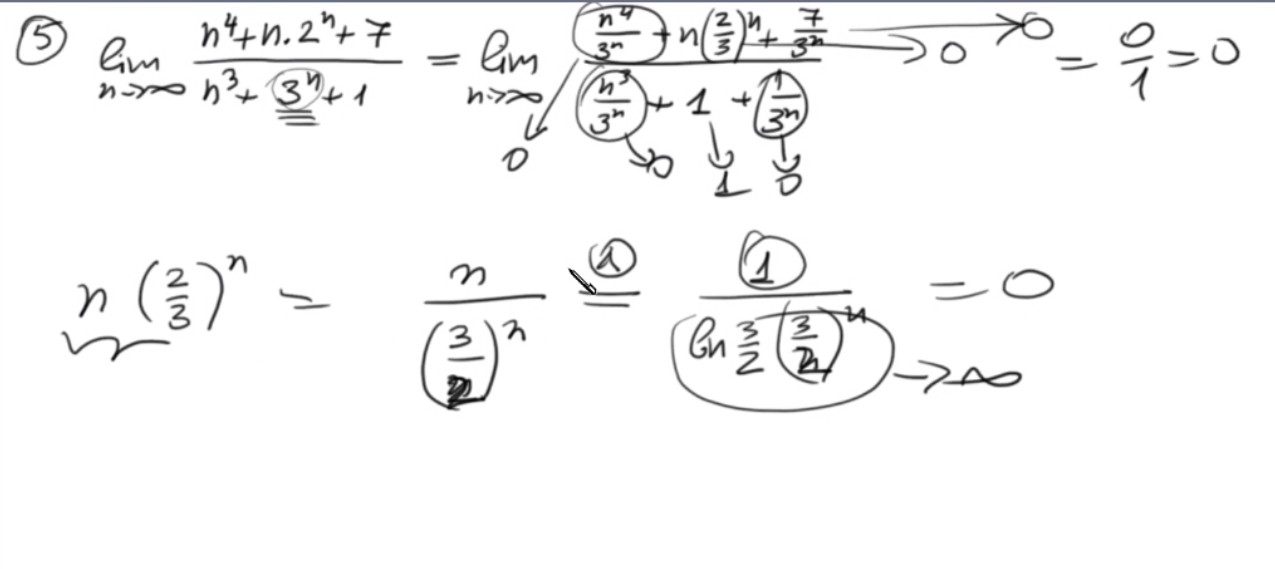 ⑤ lim n→∞ (n⁴ + n·2ⁿ + 7)/(n³ + 3ⁿ + 1) = lim n→∞ (n⁴/3ⁿ + n(2/3)ⁿ + 7/3ⁿ)/(n³/3ⁿ + 1 + 1/3ⁿ) → 0 → 0 = 0/1 = 0
0 0 1 0
n (2/3)ⁿ = n/(3/2)ⁿ = 1/(ln 3/2 (3/2)ⁿ) = 0
→ ∞